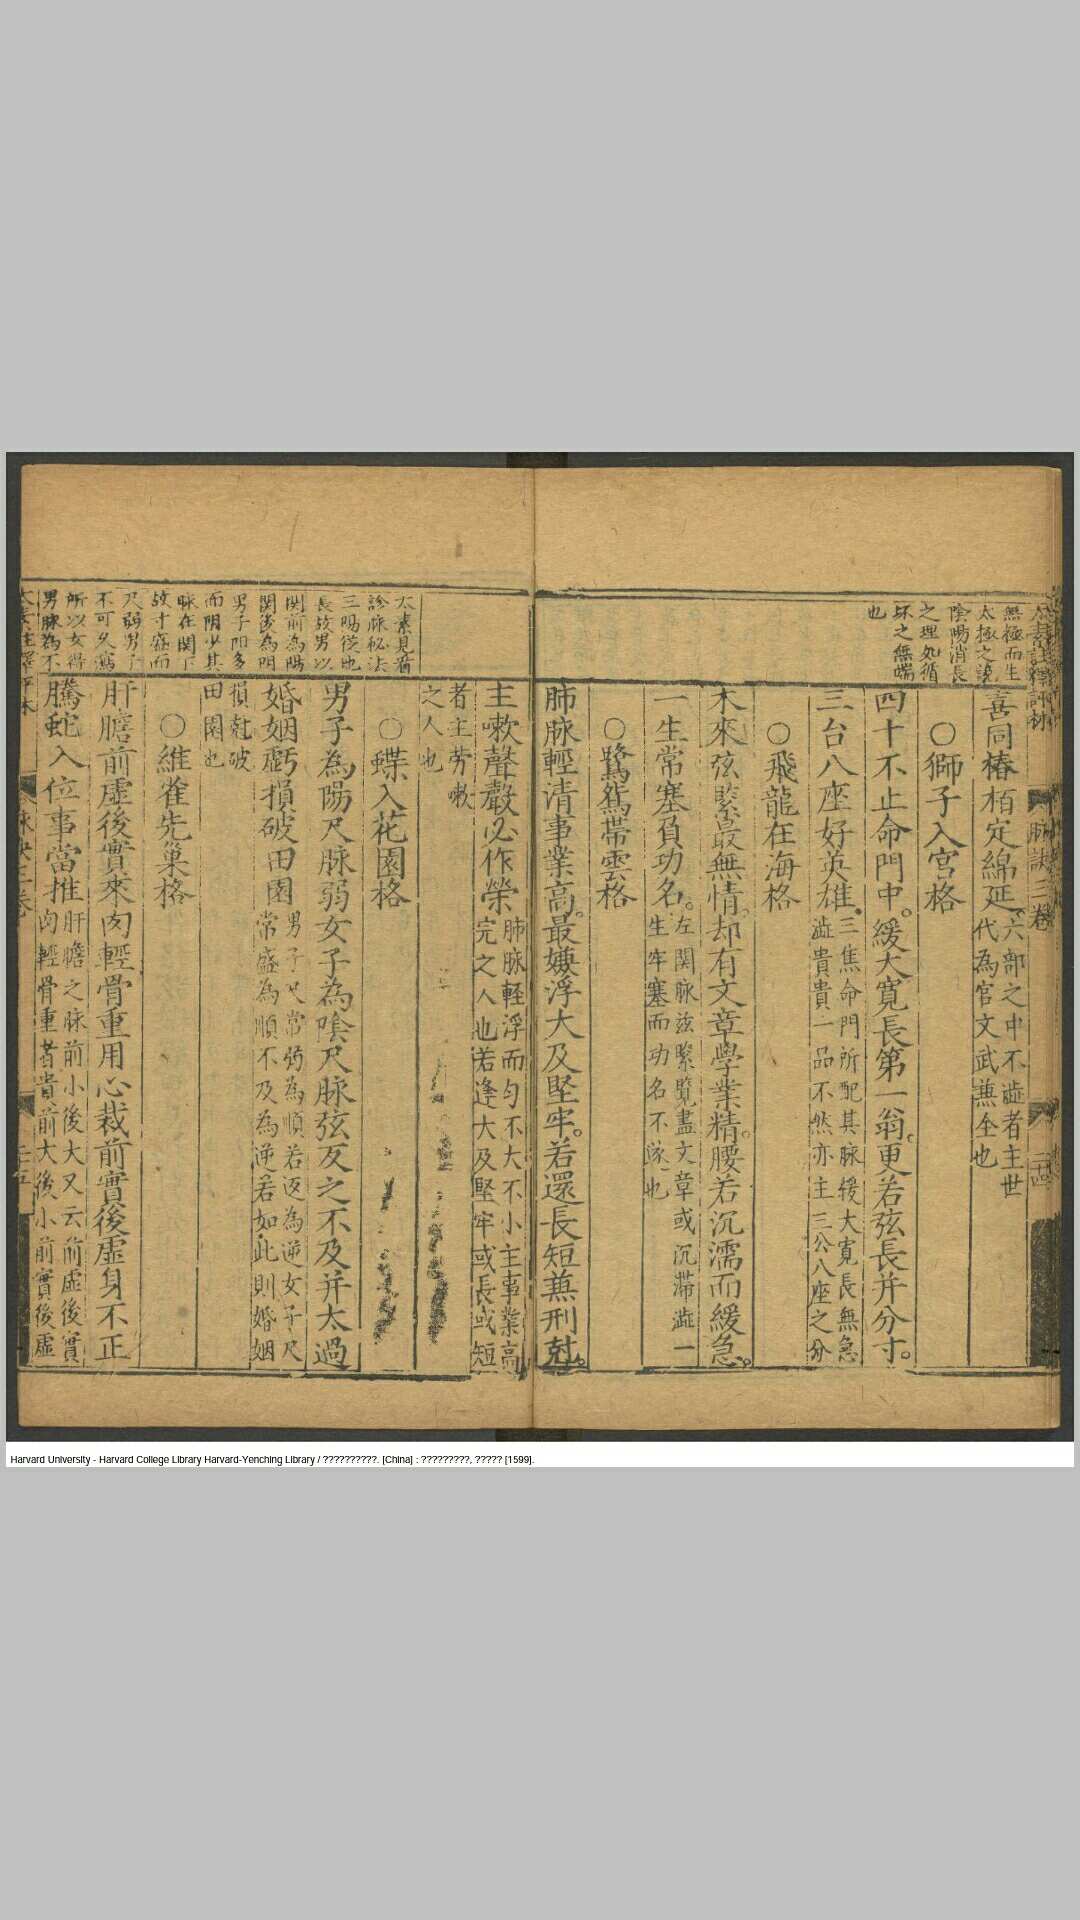 無極而生
太極之說
陰陽消長
之理如循
环之無端
也
喜同椿栢定綿延
六部之中不澁者主世
代為官文武兼全也
○獅子入宮格
四十不止命門中。緩大寬長第一翁。更若弦長并分寸。
三台八座好英雄。
三焦命門所配其脉緩大寬長無急
澁貴貴一品不然亦主三公八座之分
○飛龍在海格
木來弦緊最無情。却有文章學業精。腰若沉濡而緩急。
一生常塞負功名。
左関脉弦緊覽盡文章或沉滞澁一
生牢塞而功名不遂也
○鷺鴛帯雲格
肺脉輕清事業高。最嫌浮大及堅牢。若還長短兼刑尅。
脉訣三卷
二十四
太素見舊
診脉秘法
三陽從地
長故男以
関前為陽
関後為陰
男子阳多
而阴少其
脉在関下
故寸盛而
尺弱男子
不可久瀉
所以女得
男脉為不
主嗽聲聲必作榮
肺脉軽浮而匀不大不小主事業高
完之人也若逢大及堅牢或長或短
者主劳嗽
之人也
○蝶入花園格
男子為陽尺脉弱女子為陰尺脉弦反之不及并太過
婚姻虧損破田園
男子尺常弱為順若返為逆女子尺
常盛為順不及為逆若如此則婚姻
損尅破
田園也
○維雀先巢格
肝膽前虛後實來肉輕骨重用心裁前實後虛身不正
騰蛇入位事當推
肝膽之脉前小後大又云前虛後實
肉輕骨重者貴前大後小前實後虛
Harvard University - Harvard College Library Harvard-Yenching Library / ??????????. [China] : ?????????, ????? [1599].